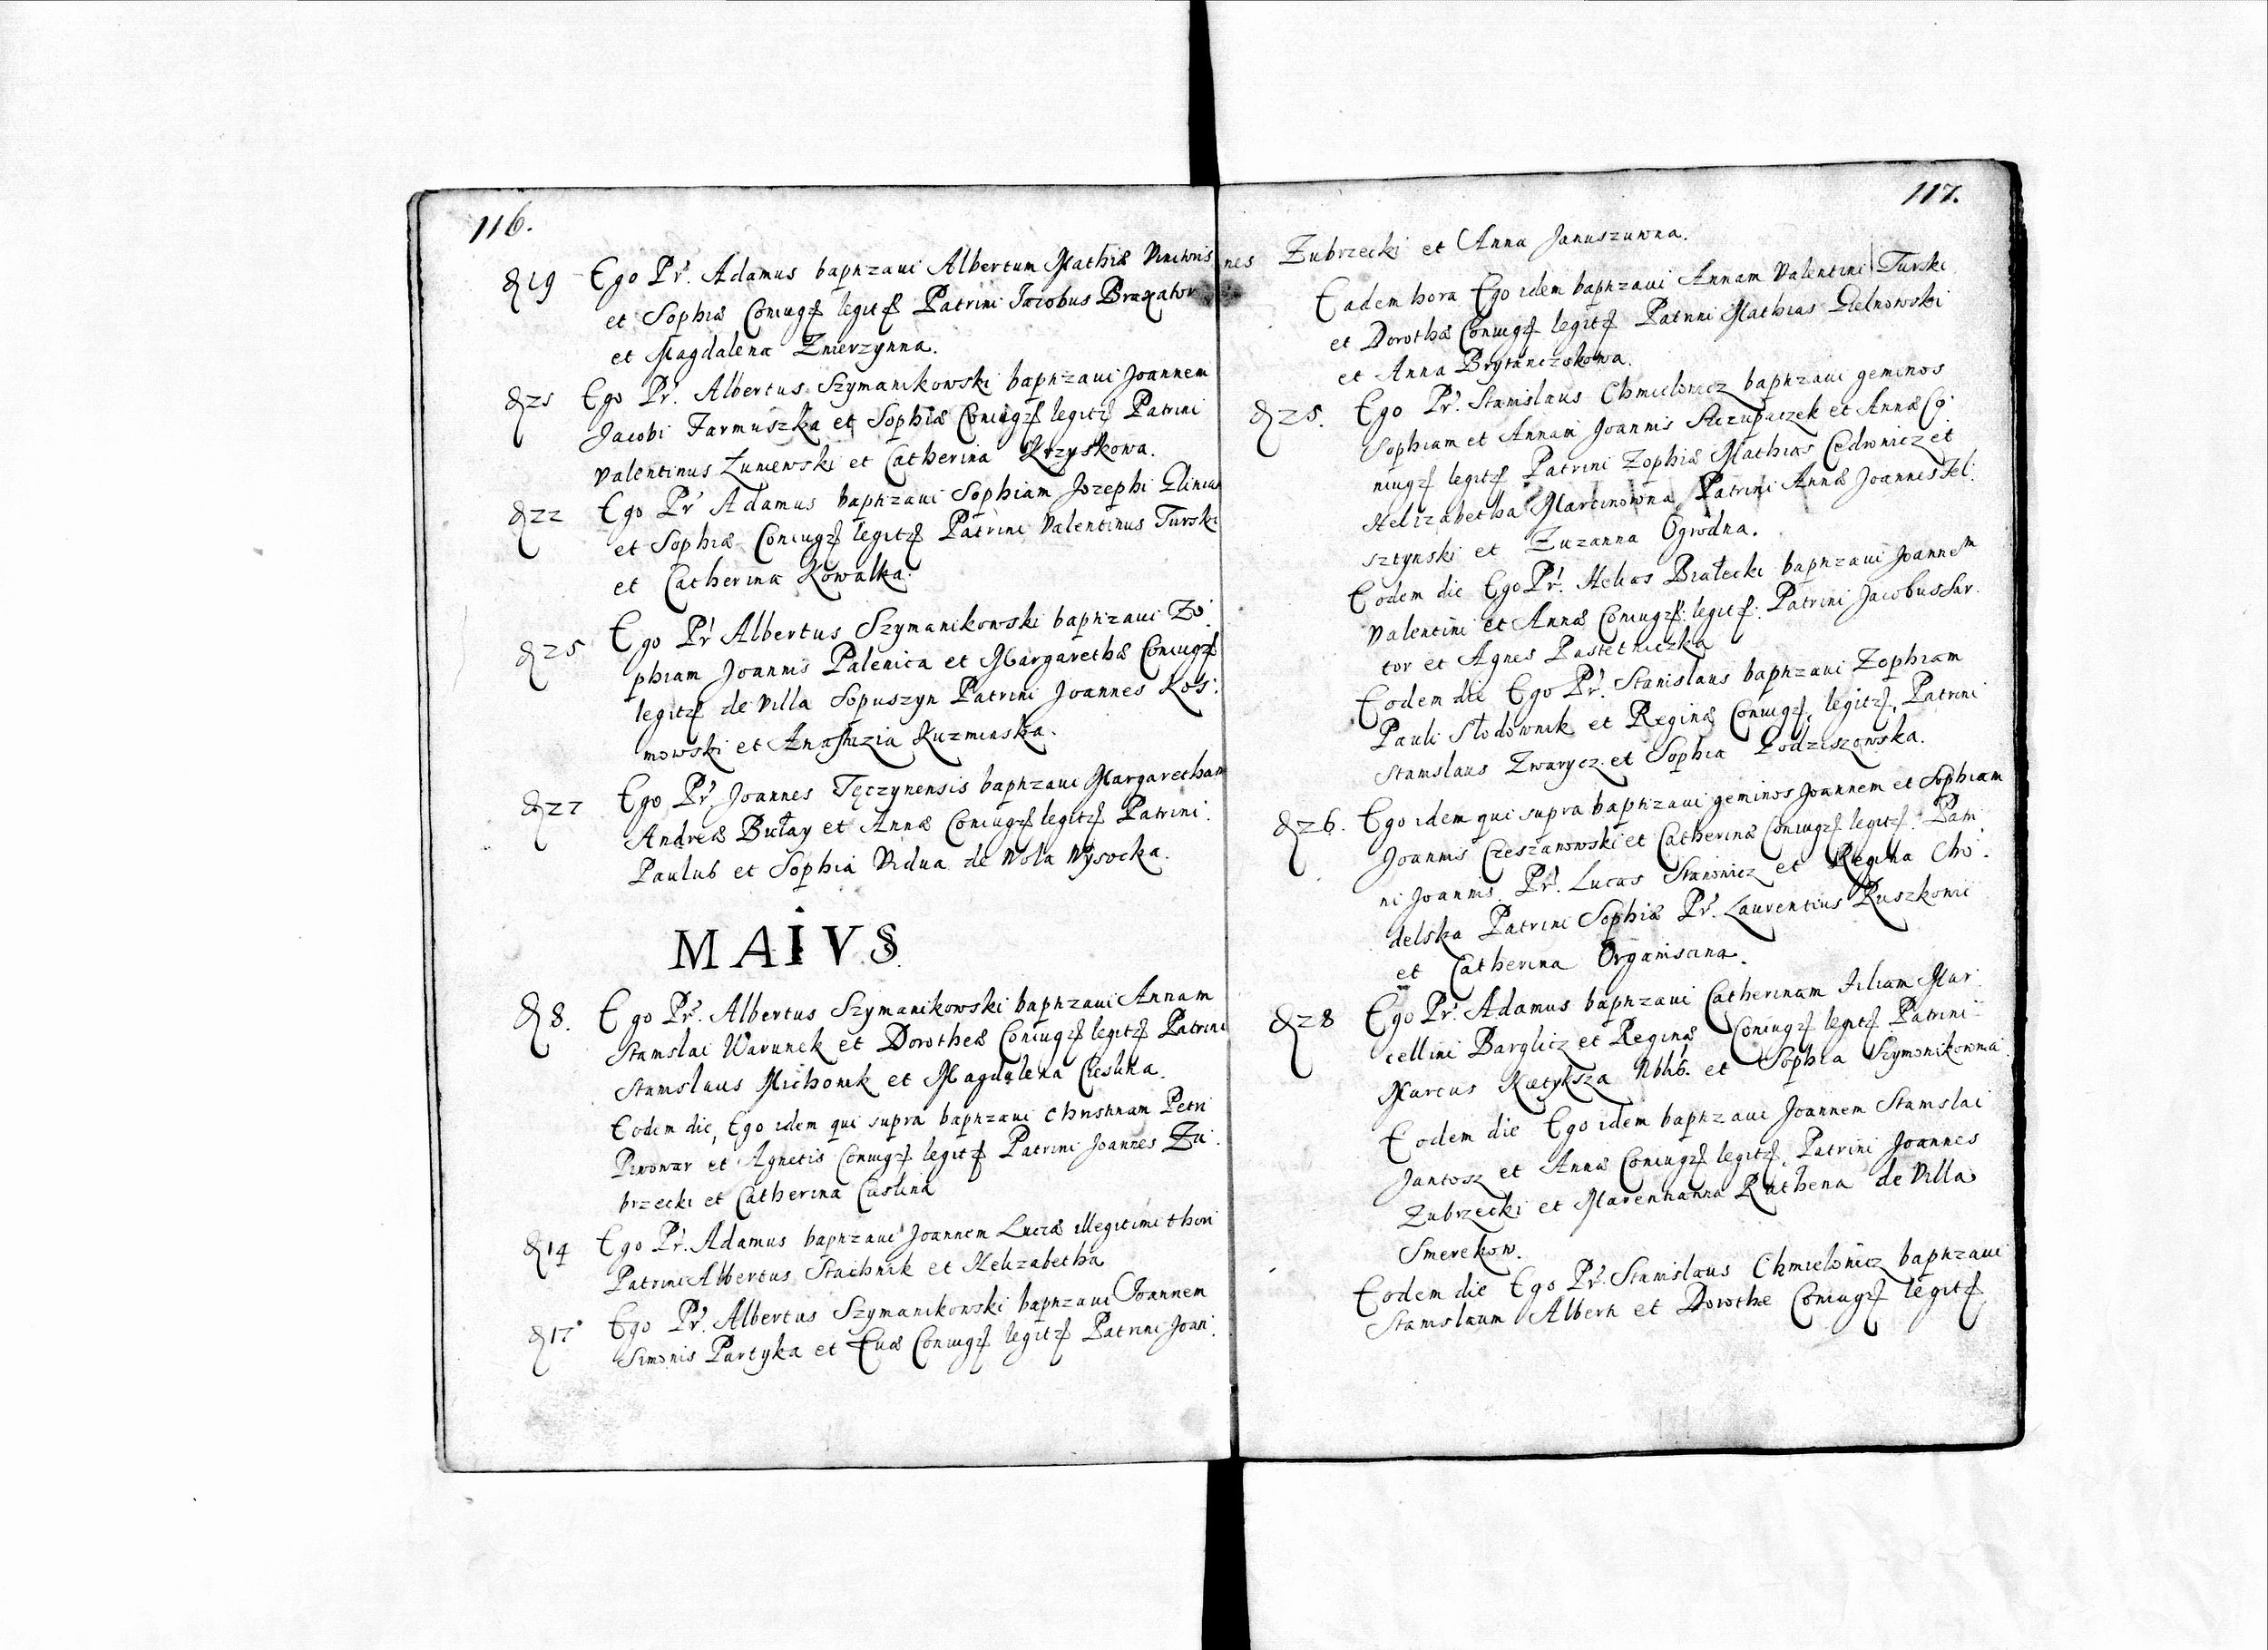 116.
D 19 Ego Pr. Adamus baptizavi Albertum Mathiæ
et Sophiæ Coniugū legitū Patrini Jacobus Braxator
et Magdalena Zmierzynna.
D 21 Ego Pr. Albertus Szymanikowski baptizavi Joannem
Jacobi Farmuszka et Sophiæ Coniugū legitū Patrini
Valentinus Zuniewski et Catherina Krzyskowa.
D 22 Ego Pr Adamus baptizavi Sophiam Jozephi
et Sophiæ Coniugū legitū Patrini Valentinus Turski
et Catherina Kowalka.
D 25 Ego Pr Albertus Szymanikowski baptizavi Zo:
phiam Joannis Palenica et Margarethæ Coniugū
legitū de Villa Sopuszyn Patrini Joannes Kos:
mowski et Anastazia Kuzminska.
D 27 Ego Pr Joannes Tęczynensis baptizavi Margaretham
Andreæ Bułay et Annæ Coniugū legitū Patrini.
Paulus et Sophia Vidua de Wola Wysocka.
MAIVS
D 8. Ego Pr. Albertus Szymanikowski baptizavi Annam
Stanislai Warunek et Dorotheæ Coniugū legitū Patrini
Stanislaus Michonik et Magdalena Ciesliка.
Eodem die, Ego idem qui supra baptizavi Christinam Petri
Piwowar et Agnetis Coniugū legitū Patrini Joannes Zu:
brzecki et Catherina Cieslina
D 14 Ego Pr. Adamus baptizavi Joannem Luciæ illegitimi thori
Patrini Albertus Stachnik et Helizabetha
D 17 Ego Pr. Albertus Szymanikowski baptizavi Joannem
Simonis Partyka et Evæ Coniugū legitū Patrini Joan:
117.
nes Zubrzecki et Anna Januszuwna.
Eadem hora Ego idem baptizavi Annam Valentini Turski
et Dorothæ Coniugū legitū Patrini Mathias Dielnowski
et Anna Brytanczokowa.
D 25. Ego Pr. Stanislaus Chmielowicz baptizavi geminos
Sophiam et Annam Joannis Szczupaczek et Annæ Co:
niugū legitū Patrini Zophiæ Mathias Cedrowicz et
Helizabetha Marcinowna Patrini Annæ Joannes Fel:
sztynski et Zuzanna Ogrodna.
Eodem die Ego Pr. Helias Białecki baptizavi Joannem
Valentini et Annæ Coniugū: legitū: Patrini Jacobus Sar:
tor et Agnes Pasteniczka
Eodem die Ego Pr. Stanislaus baptizavi Zophiam
Pauli Słodownik et Reginæ Coniugū, legitū, Patrini
Stanislaus Zwarycz et Sophia Łodziszowska.
D 26. Ego idem qui supra baptizavi geminos Joannem et Sophiam
Joannis Czeszanowski et Catherinæ Coniugū legitū. Patri
ni Joannis. Pr. Lucas Stanowicz et Regina Cho:
delska Patrini Sophiæ Pr. Laurentius Ruszkowic
et Catherina Organiscina.
D 28 Ego Pr. Adamus baptizavi Catherinam Filiam Mar:
cellini Barglicz et Reginæ Coniugū legitū Patrini
Marcus Nblis. et Sophia Szymonikowna.
Eodem die Ego idem baptizavi Joannem Stanislai
Jantosz et Annæ Coniugū legitū, Patrini Joannes
Zubrzecki et Marennanna Ruthena de Villa
Smerekow.
Eodem die Ego Pr. Stanislaus Chmielowicz baptizavi
Stanislaum Alberti et Dorothe Coniugū legitū